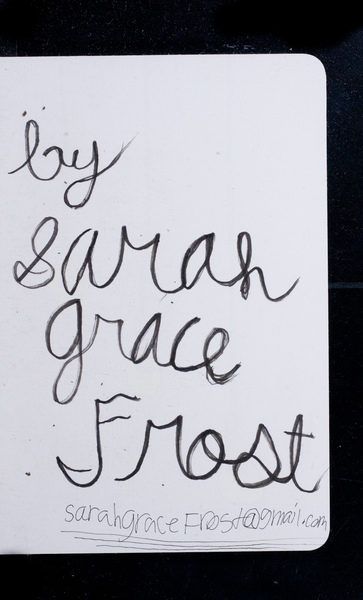 by
sarah
grace
Frost
sarahgraceFrost@gmail.com